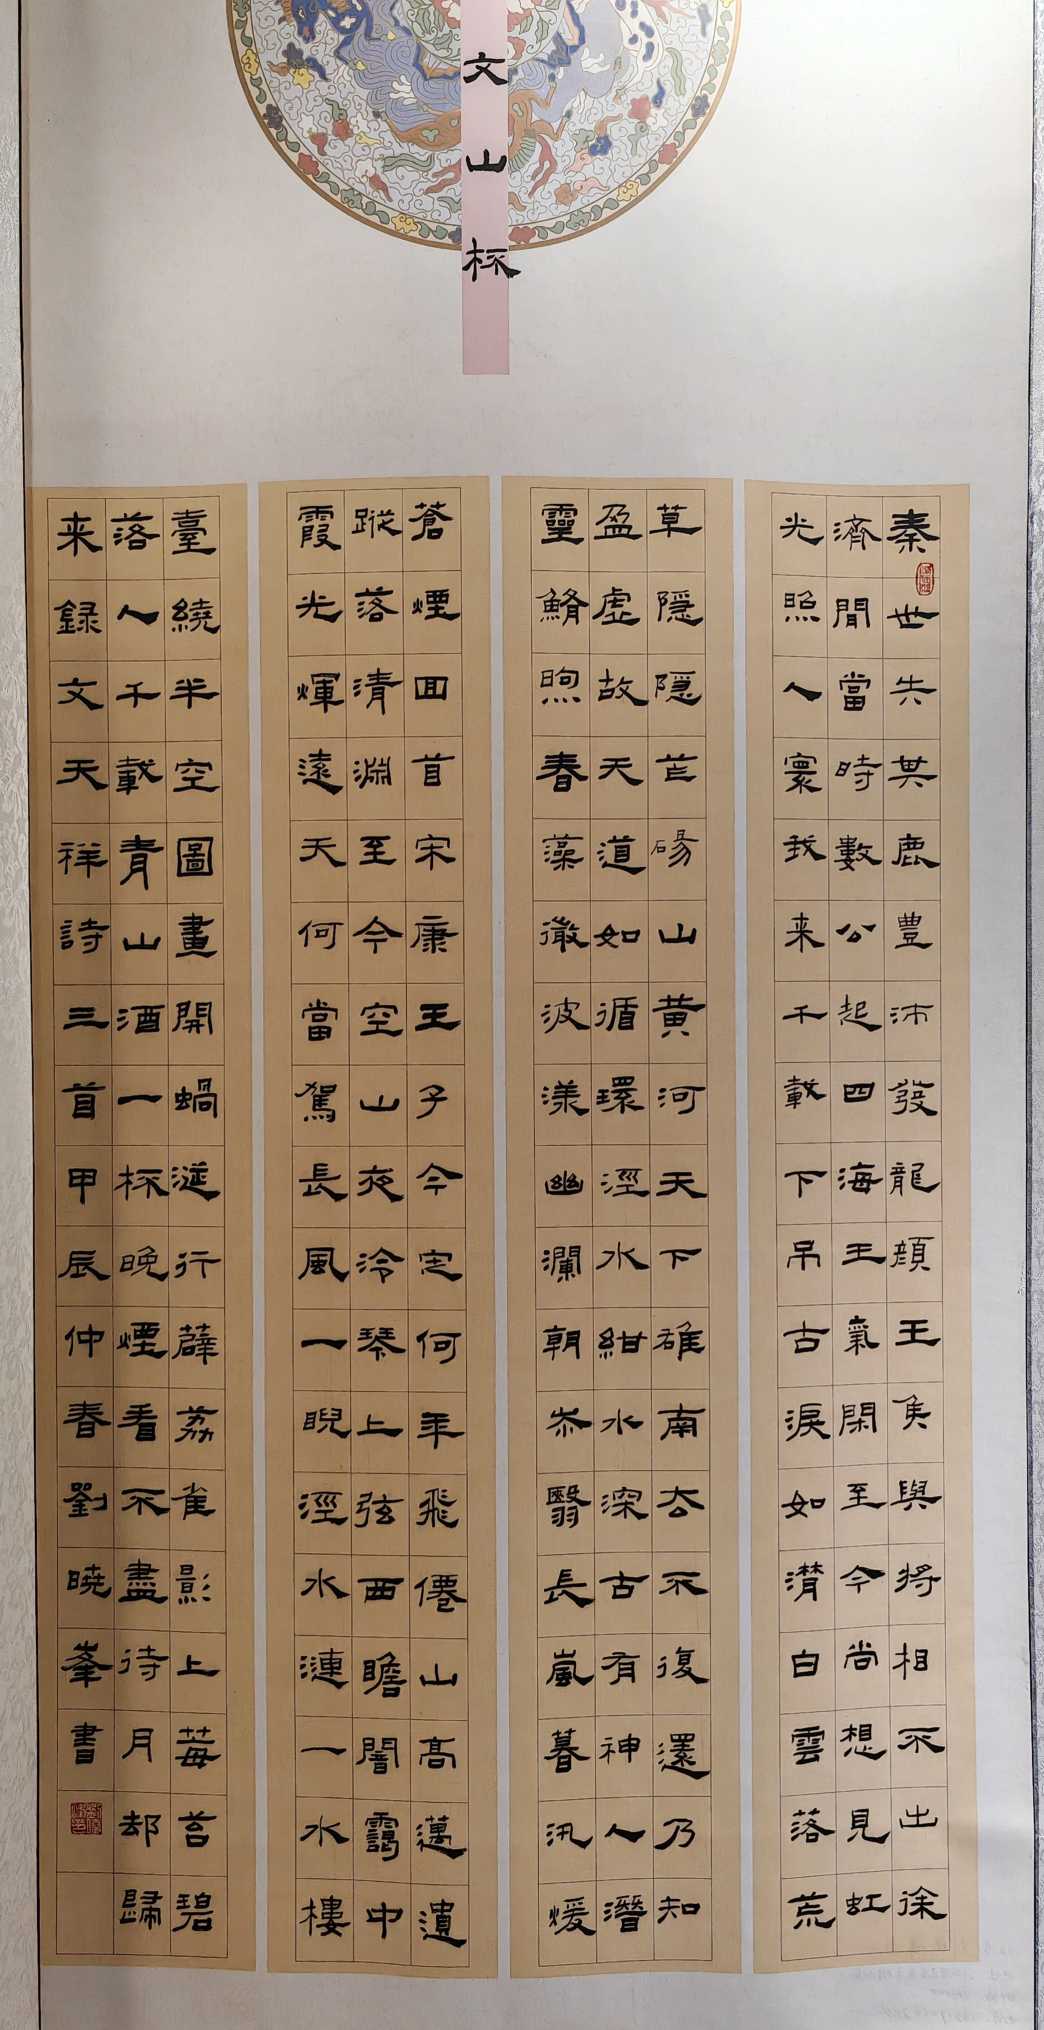 文山杯
秦世失其鹿豐沛發龍顏王侯與將相不出徐
濟間當時數公起四海王氣閑至今尚想見虹
光照人寰我来千載下吊古淚如潸白雲落荒
草隱隱芒碭山黃河天下雄南去不復還乃知
盈虛故天道如循環涇水紺水深古有神人潛
靈鰌煦春藻徽波漾幽瀾朝忝翳長嵐暮汛煖
蒼煙回首宋康王子今定何年飛僊山高邁遺
蹤落清淵至今空山夜泠琴上弦西瞻闇靄中
霞光輝遠天何當駕長風一睨涇水漣一水樓
臺繞半空圖畫開蝸涎行薜荔雀影上莓苔碧
落人千載青山酒一杯晚煙看不盡待月却歸
来録文天祥詩三首甲辰仲春劉曉峯書